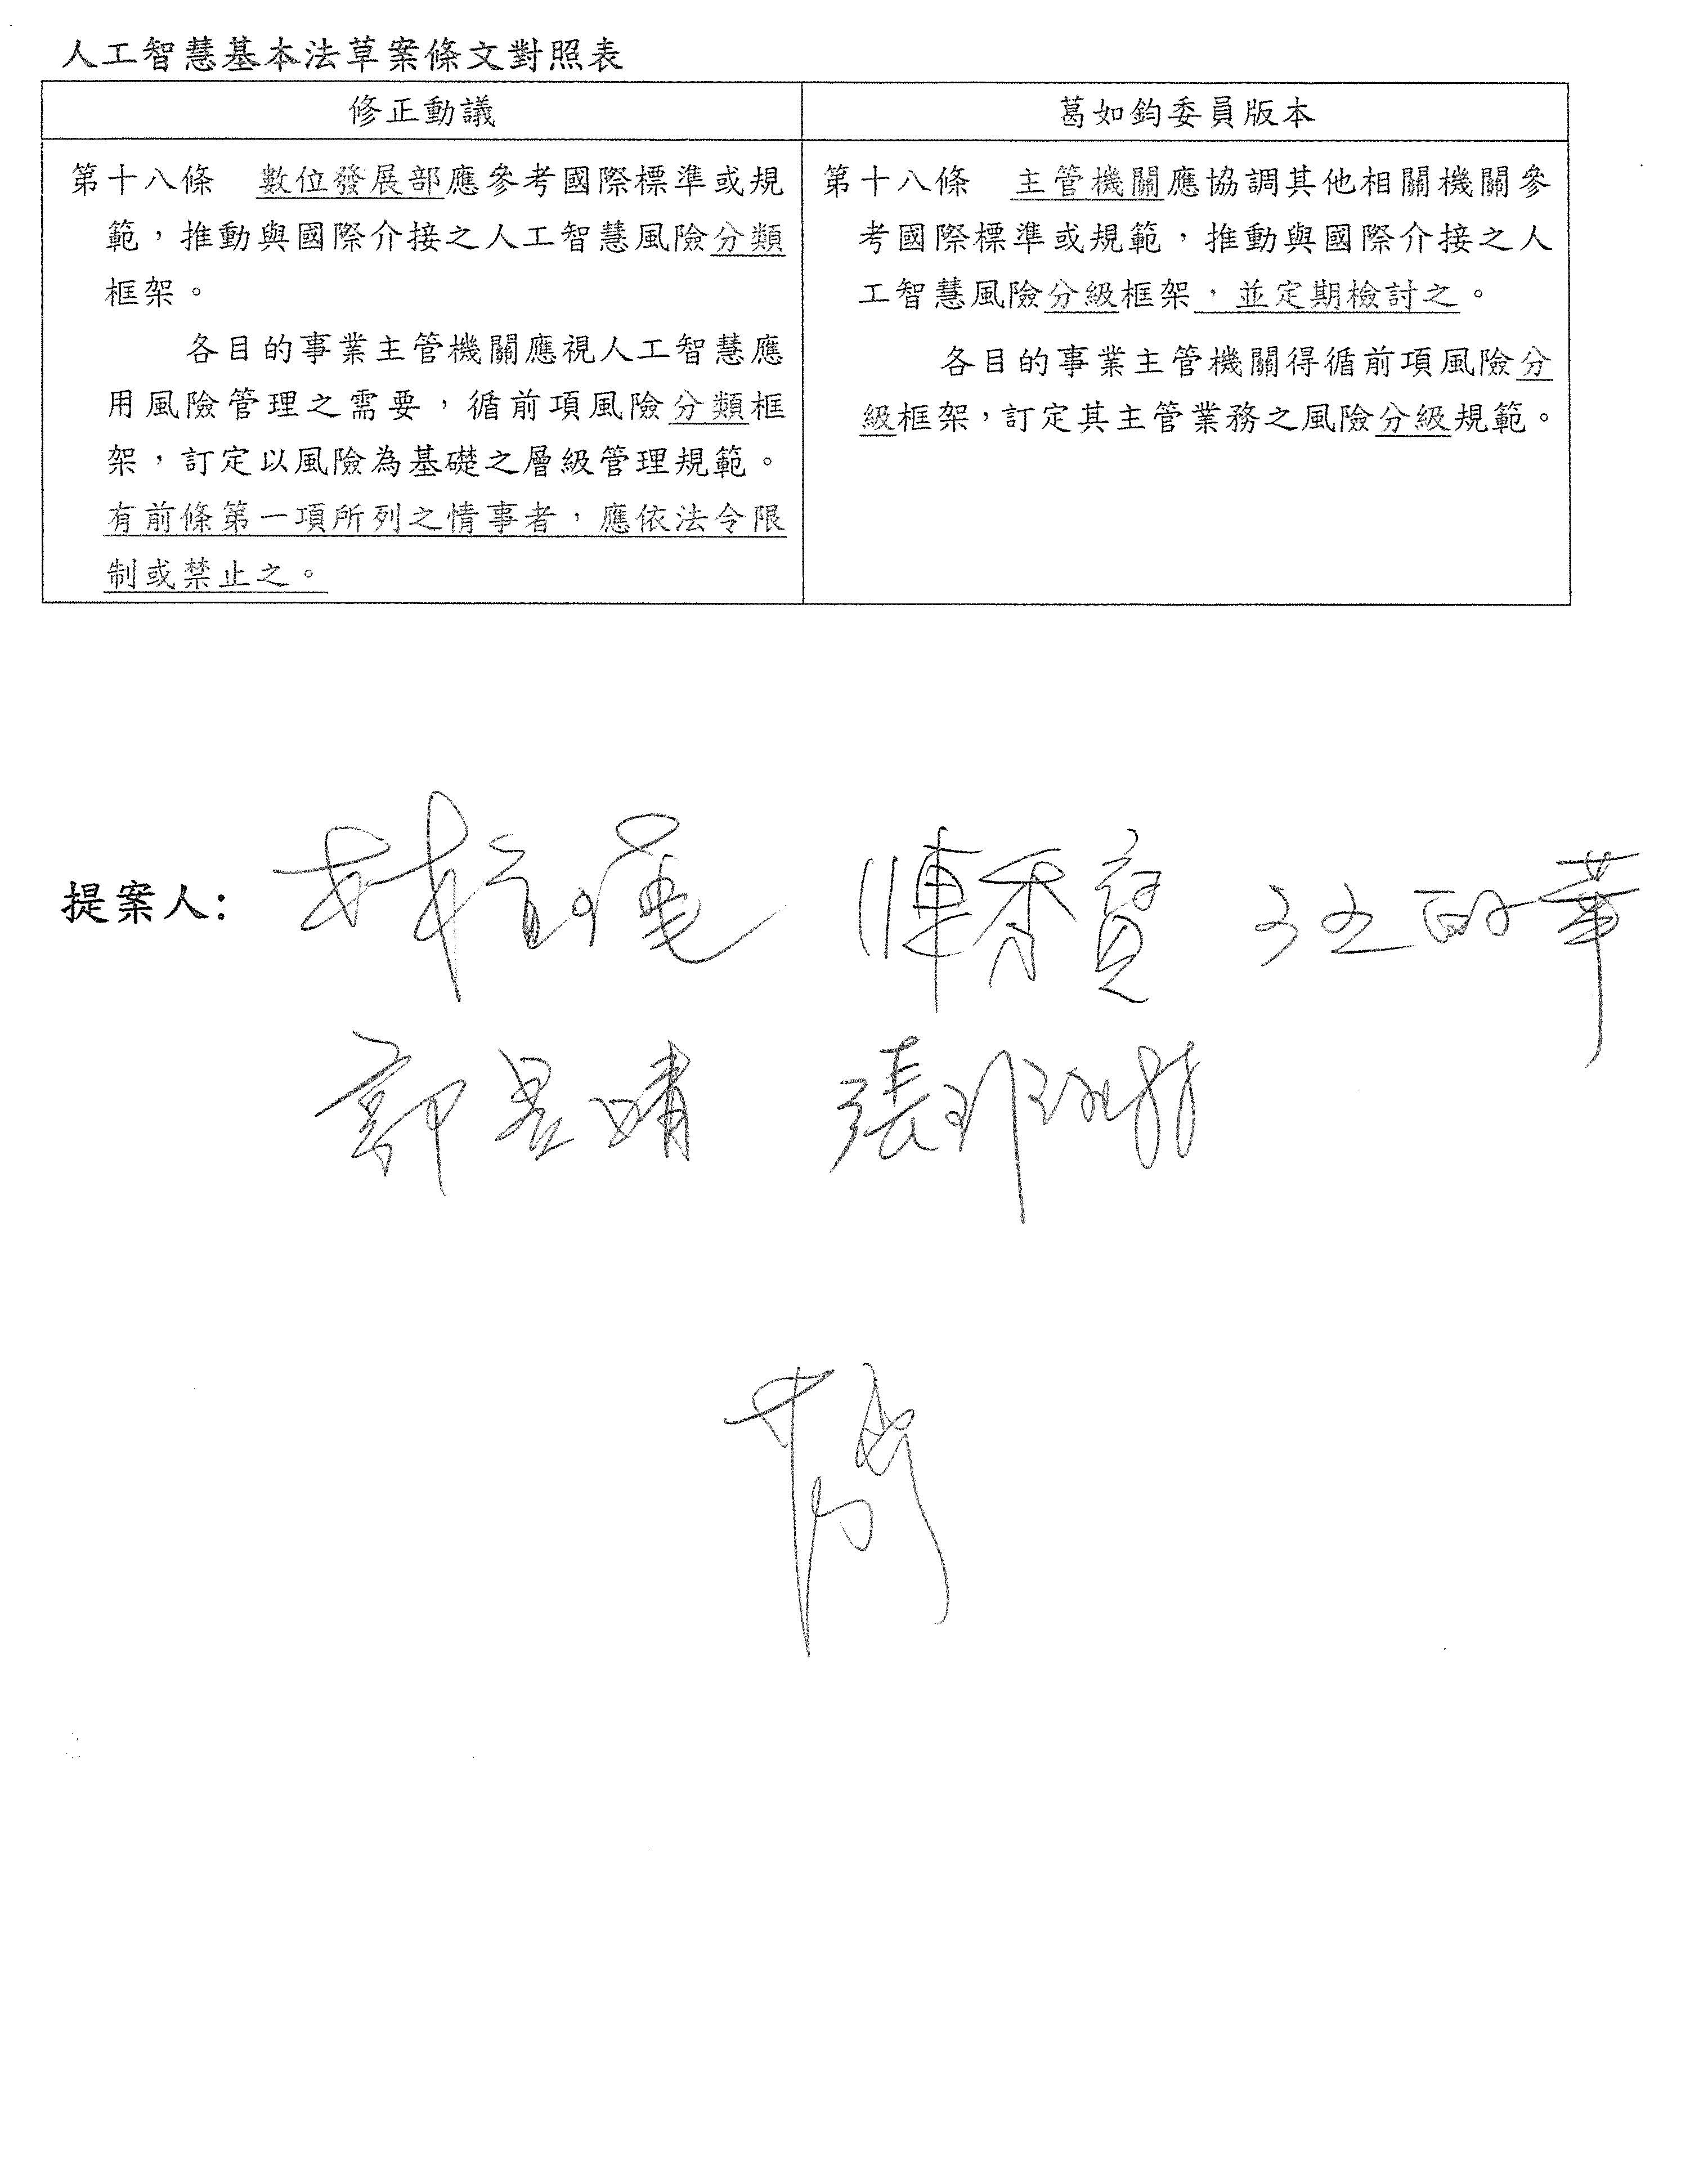 人工智慧基本法草案條文對照表
修正動議
第十八條　數位發展部應參考國際標準或規
範，推動與國際介接之人工智慧風險分類
框架。
各目的事業主管機關應視人工智慧應
用風險管理之需要，循前項風險分類框
架，訂定以風險為基礎之層級管理規範。
有前條第一項所列之情事者，應依法令限
制或禁止之。
葛如鈞委員版本
第十八條　主管機關應協調其他相關機關參
考國際標準或規範，推動與國際介接之人
工智慧風險分級框架，並定期檢討之。
各目的事業主管機關得循前項風險分
級框架，訂定其主管業務之風險分級規範。
提案人：林 陳秀寳
郭昱晴